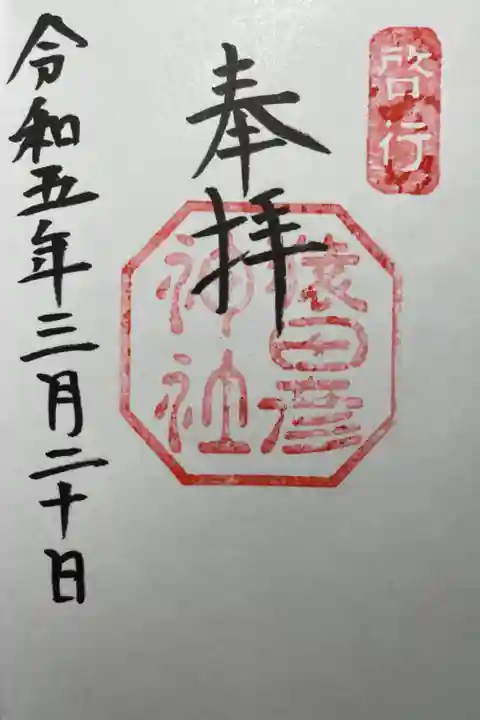 啓行
奉拝
猿田彦
神社
令和五年三月二十日